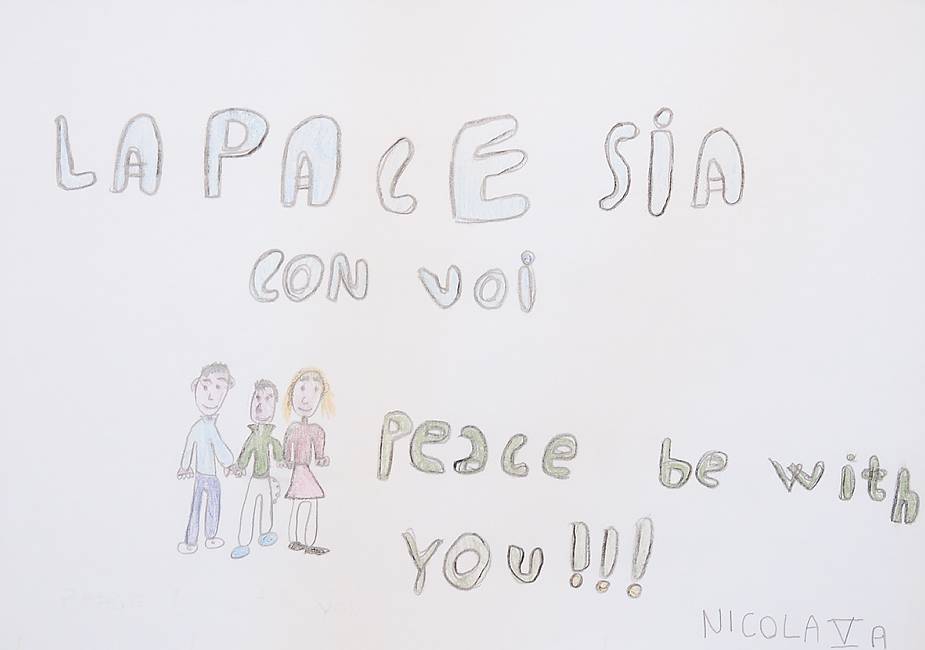 LA PACE SiA
CON VOi
Peace be with
YOu!!!
NICOLA V A